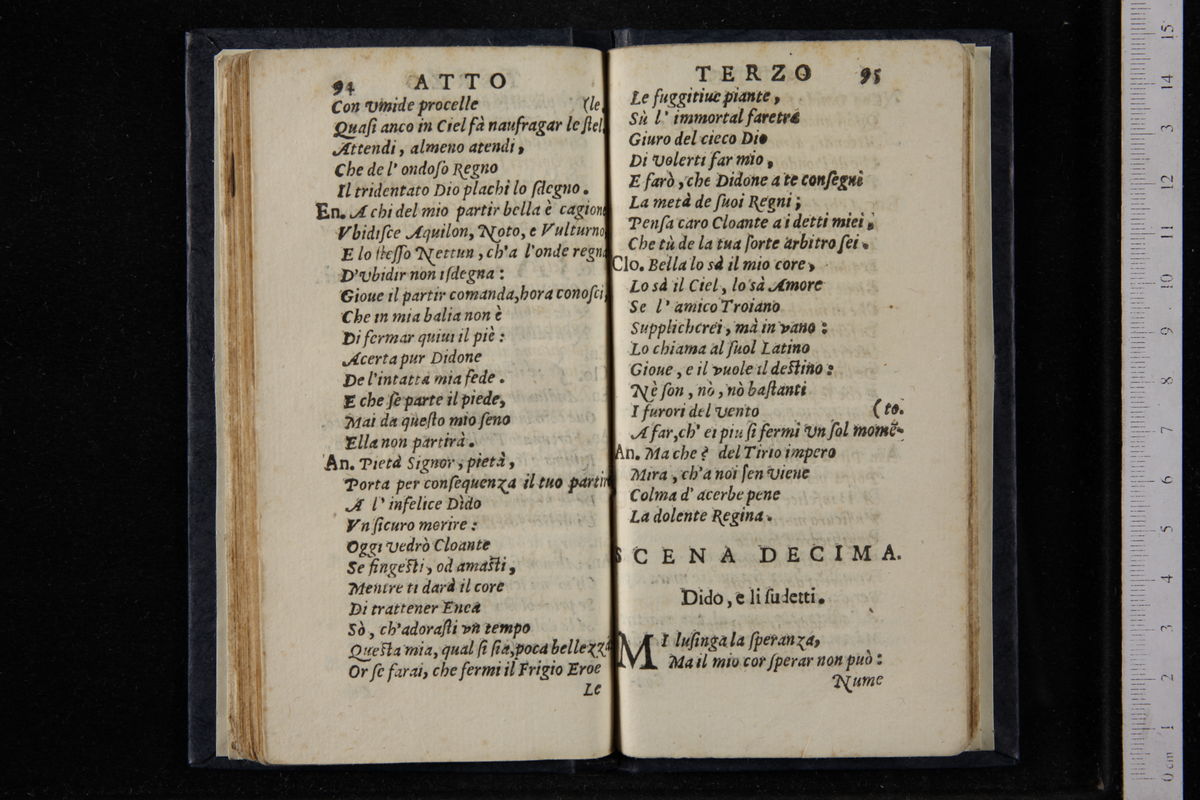 94 ATTO
Con vmide procelle (le,
Quaſi anco in Ciel fà naufragar le ſtel,
Attendi, almeno atendi,
Che de l' ondoſo Regno
Il tridentato Dio plachi lo ſdegno.
En. A chi del mio partir bella è cagione
Vbidiſce Aquilon, Noto, e Vulturno
E lo ſteſſo Nettun, ch'a l'onde regna
D'vbidir non iſdegna:
Gioue il partir comanda, hora conoſci,
Che in mia balia non è
Di fermar quiui il piè:
Acerta pur Didone
De l'intatta mia fede.
E che ſe parte il piede,
Mai da queſto mio ſeno
Ella non partirà.
An. Pietà Signor, pietà,
Porta per conſequenza il tuo partir
A l' infelice Dìdo
Vn ſicuro morire:
Oggi vedrò Cloante
Se fingeſti, od amaſti,
Mentre ti darà il core
Di trattener Enea
Sò, ch'adoraſti vn tempo
Queſta mia, qual ſi ſia, poca bellezza
Or ſe farai, che fermi il Frigio Eroe
Le
TERZO 95
Le fuggitiue piante,
Sù l' immortal faretra
Giuro del cieco Dio
Di volerti far mio,
E farò, che Didone a te conſegni
La metà de ſuoi Regni;
Penſa caro Cloante a i detti miei,
Che tù de la tua ſorte arbitro ſei.
Clo. Bella lo sà il mio core,
Lo sà il Ciel, lo sà Amore
Se l' amico Troiano
Supplicherei, mà in vano:
Lo chiama al ſuol Latino
Gioue, e il vuole il deſtino:
Nè ſon, nò, nò baſtanti
I furori del vento (to.
A far, ch' ei piu ſi fermi vn ſol momẽ-
An. Ma che? del Tirio impero
Mira, ch'a noi ſen viene
Colma d' acerbe pene
La dolente Regina.
SCENA DECIMA.
Dido, e li ſudetti.
MI luſinga la ſperanza,
Ma il mio cor ſperar non può:
Nume
0 cm 1 2 3 4 5 6 7 8 9 10 11 12 13 14 15